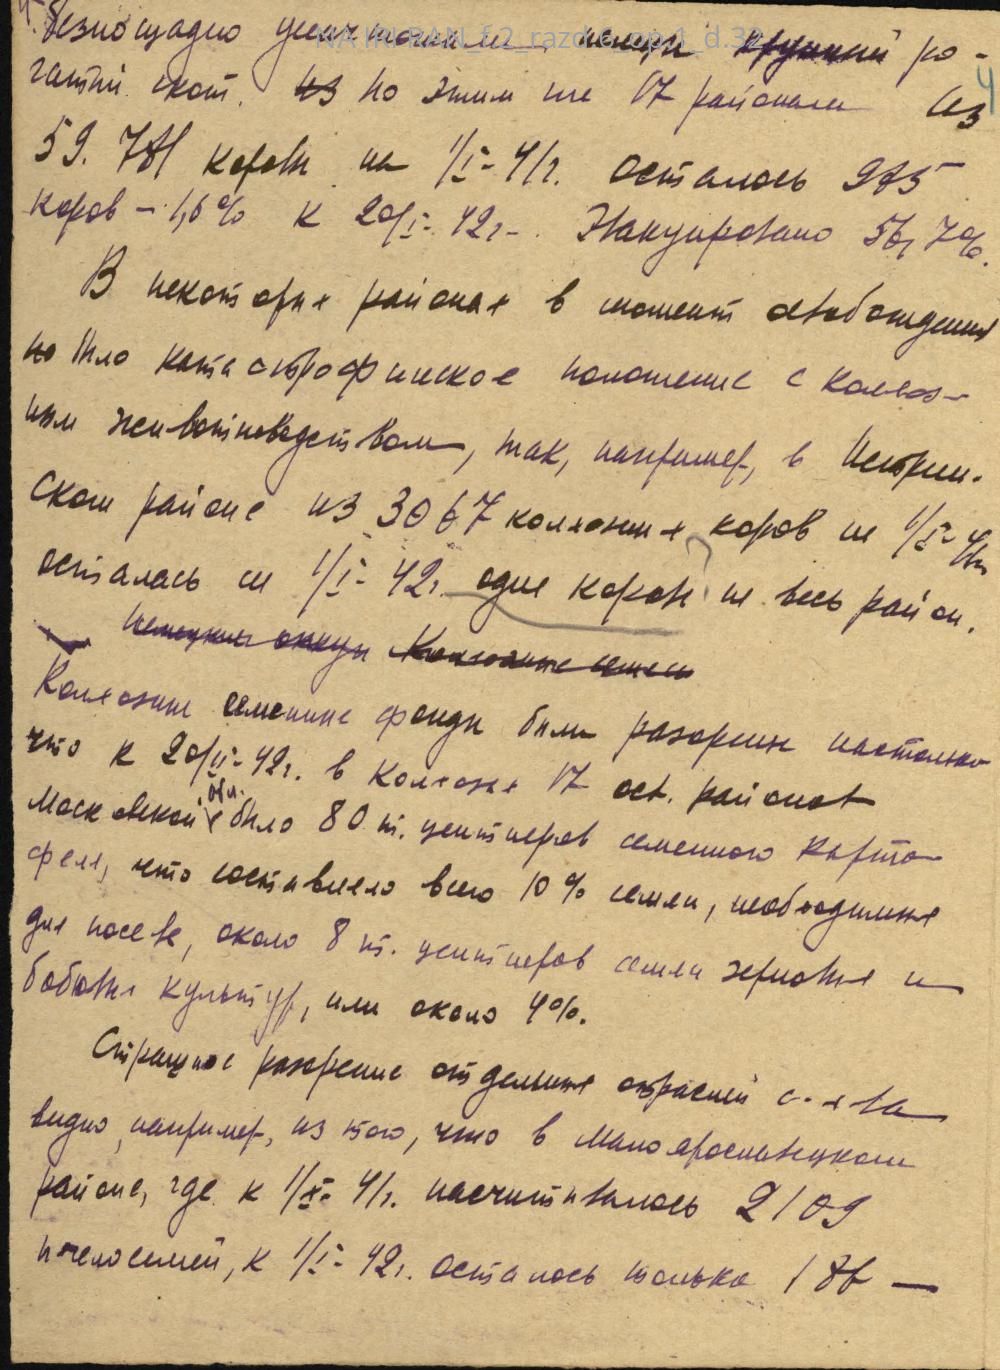 безпощадно уничтожили немцы крупный ро-
гатый скот. из По этим же 17 районам из
59.781 коровы на 1/I-41г. осталось 975
коров – 1,6% к 20/I-42г. Эвакуировано 56,7%.
В некоторых районах в момент освобождения
но было катастрофическое положение с колхоз-
ным животноводством, так, например, в Истрин-
ском районе из 3067 колхозных коров на 1/X-41г
осталась на 1/I-42г. одна корова на весь район.
Немецкие оккуп Колхозные семен
Колхозные семенные фонды были разорены настолько
что к 20/II-42г. в колхозах 17 осв. районов
Московской обл. было 80 т. центнеров семенного карто-
феля, что составляло всего 10% семян, необходимых
для посева, около 8 т. центнеров семян зерновых и
бобовых культур, или около 4%.
Страшное разорение отдельных отраслей с-х-ва
видно, например, из того, что в Малоярославецком
районе, где к 1/X-41г. насчитывалось 2109
пчелосемей, к 1/I-42г. осталось только 176 —
NA IRI RAN_f.2_razd.6_op.1_d.32
4